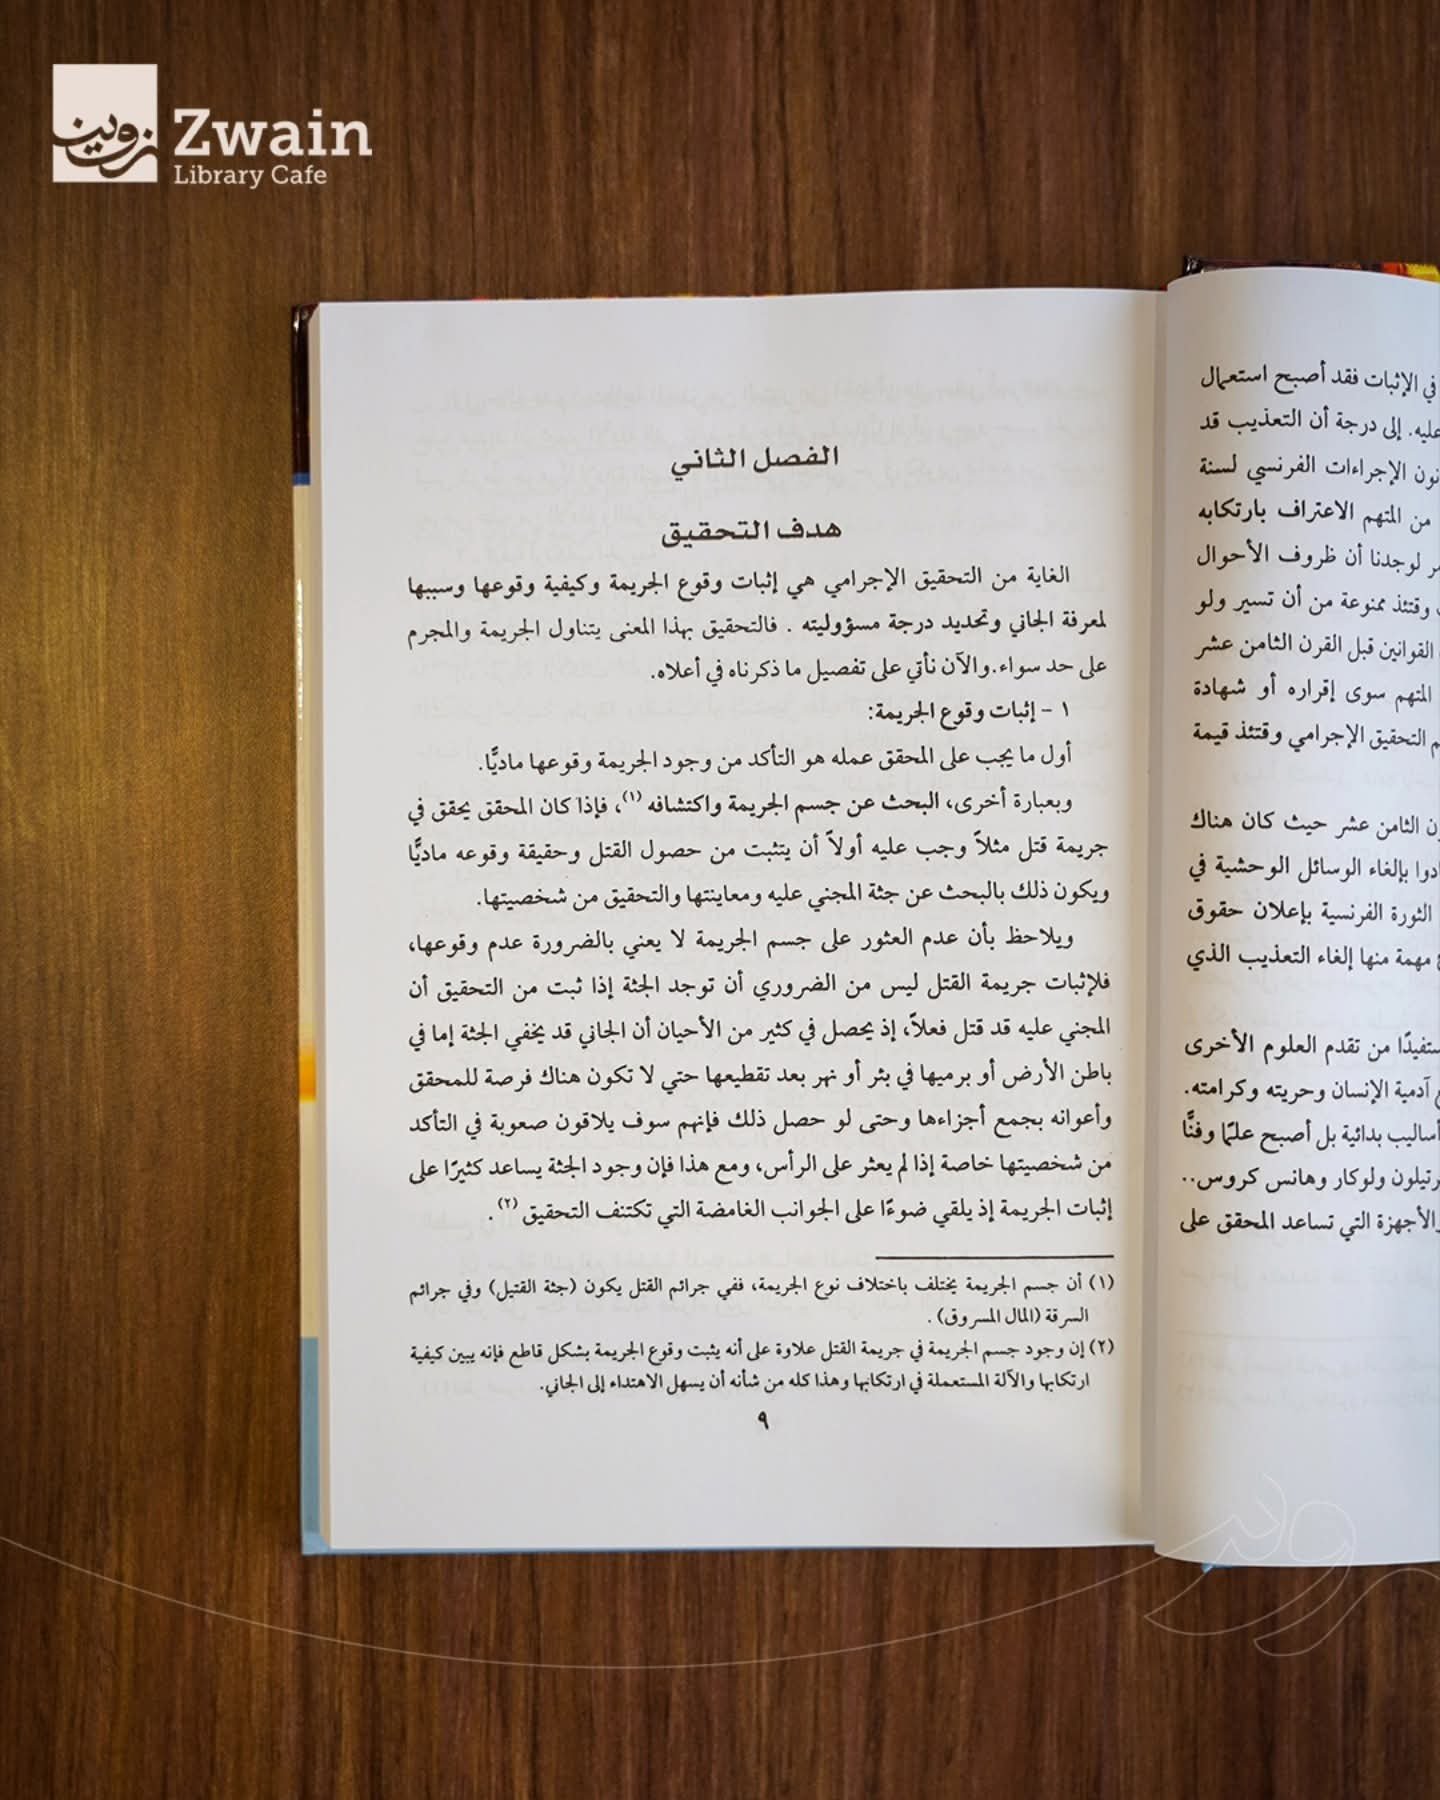 زوين
Zwain
Library Cafe
في الإثبات فقد أصبح استعمال
عليه. إلى درجة أن التعذيب قد
نون الإجراءات الفرنسي لسنة
من المتهم الاعتراف بارتكابه
لوجدنا أن ظروف الأحوال
وقتئذ ممنوعة من أن تسير ولو
القوانين قبل القرن الثامن عشر
المتهم سوى إقراره أو شهادة
م التحقيق الإجرامي وقتئذ قيمة
ن الثامن عشر حيث كان هناك
ادوا بإلغاء الوسائل الوحشية في
الثورة الفرنسية بإعلان حقوق
مهمة منها إلغاء التعذيب الذي
ستفيدًا من تقدم العلوم الأخرى
آدمية الإنسان وحريته وكرامته.
أساليب بدائية بل أصبح علمًا وفنًّا
رتيلون ولوكار وهانس كروس..
الأجهزة التي تساعد المحقق على
الفصل الثاني
هدف التحقيق
الغاية من التحقيق الإجرامي هي إثبات وقوع الجريمة وكيفية وقوعها وسببها
لمعرفة الجاني وتحديد درجة مسؤوليته . فالتحقيق بهذا المعنى يتناول الجريمة والمجرم
على حد سواء.والآن نأتي على تفصيل ما ذكرناه في أعلاه.
١ - إثبات وقوع الجريمة:
أول ما يجب على المحقق عمله هو التأكد من وجود الجريمة وقوعها ماديًّا.
وبعبارة أخرى، البحث عن جسم الجريمة واكتشافه (١)، فإذا كان المحقق يحقق في
جريمة قتل مثلاً وجب عليه أولاً أن يتثبت من حصول القتل وحقيقة وقوعه ماديًّا
ويكون ذلك بالبحث عن جثة المجني عليه ومعاينتها والتحقيق من شخصيتها.
ويلاحظ بأن عدم العثور على جسم الجريمة لا يعني بالضرورة عدم وقوعها،
فلإثبات جريمة القتل ليس من الضروري أن توجد الجثة إذا ثبت من التحقيق أن
المجني عليه قد قتل فعلاً، إذ يحصل في كثير من الأحيان أن الجاني قد يخفي الجثة إما في
باطن الأرض أو برميها في بئر أو نهر بعد تقطيعها حتي لا تكون هناك فرصة للمحقق
وأعوانه بجمع أجزاءها وحتى لو حصل ذلك فإنهم سوف يلاقون صعوبة في التأكد
من شخصيتها خاصة إذا لم يعثر على الرأس، ومع هذا فإن وجود الجثة يساعد كثيرًا على
إثبات الجريمة إذ يلقي ضوءًا على الجوانب الغامضة التي تكتنف التحقيق (٢).
(١) أن جسم الجريمة يختلف باختلاف نوع الجريمة، ففي جرائم القتل يكون (جثة القتيل) وفي جرائم
السرقة (المال المسروق) .
(٢) إن وجود جسم الجريمة في جريمة القتل علاوة على أنه يثبت وقوع الجريمة بشكل قاطع فإنه يبين كيفية
ارتكابها والآلة المستعملة في ارتكابها وهذا كله من شأنه أن يسهل الاهتداء إلى الجاني.
٩
زوين